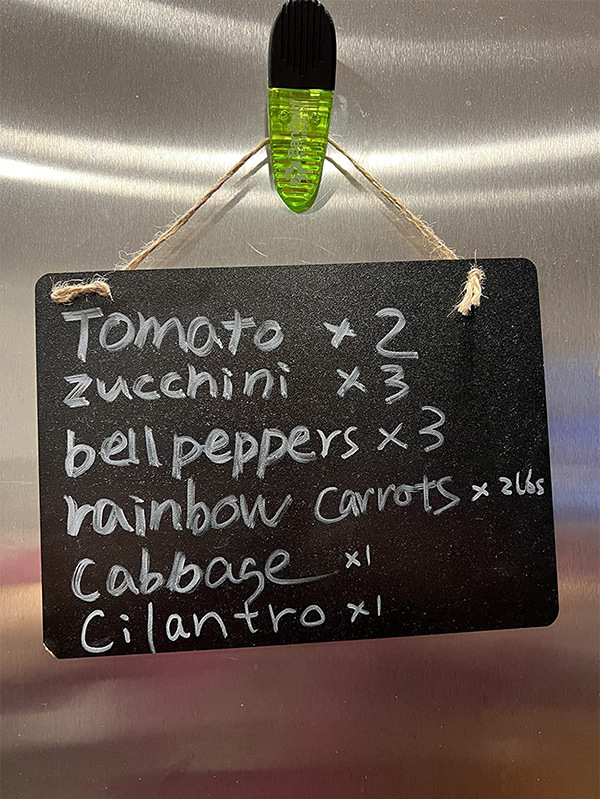 Tomato x 2
zucchini x 3
bell peppers x 3
rainbow carrots x 2lbs
cabbage x1
Cilantro x1